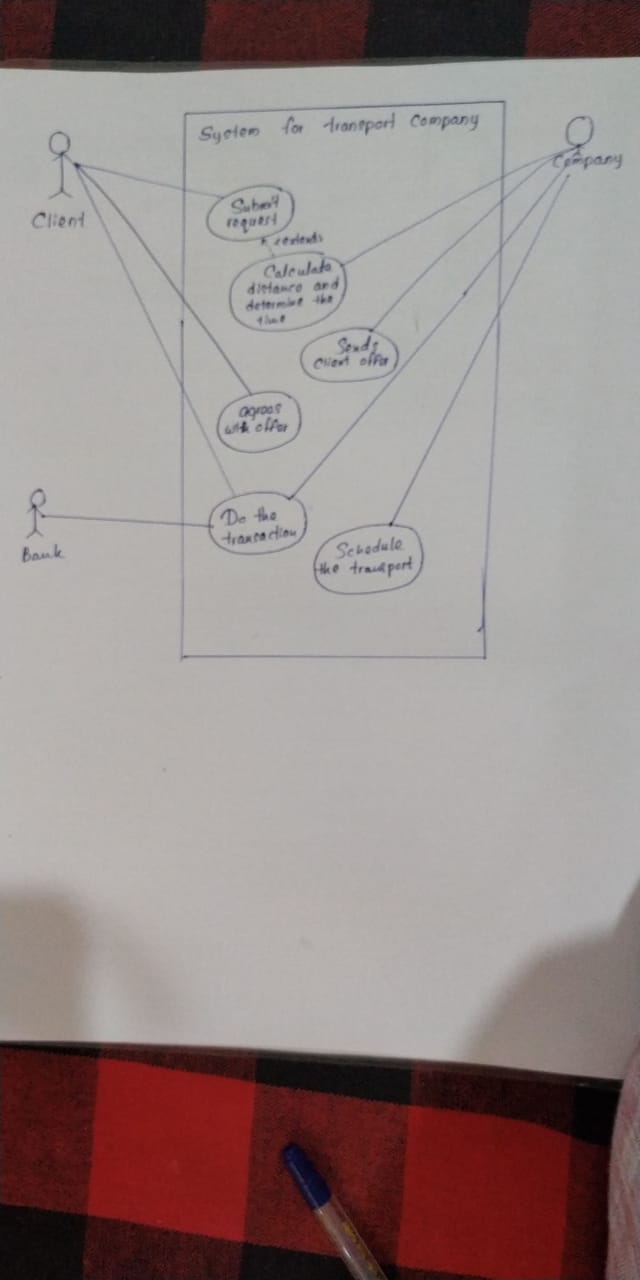 System for transport Company
Client
Company
Submit
request
extends
Calculate
distance and
determine the
time
Sends
Client offer
agrees
with offer
Bank
Do the
transaction
Schedule
the transport